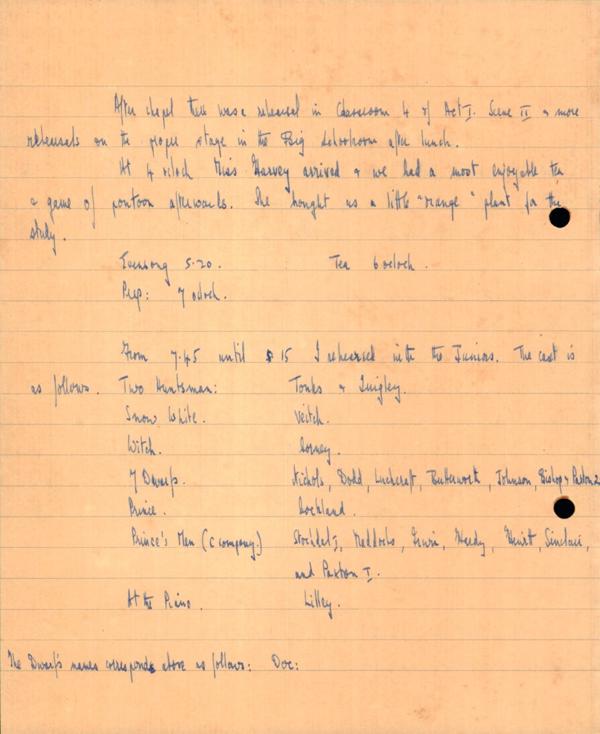 After chapel there was a rehearsal in Classroom 4 of Act I. Scene II & more
rehearsals on the proper stage in the Big Schoolroom after lunch.
At 4 o'clock Miss Harvey arrived & we had a most enjoyable tea
a game of pontoon afterwards. She bought us a little "orange" plant for the
study.
Evensong 5.20. Tea 6 o'clock.
Prep: 7 o'clock.
From 7.45 until 8 15 I rehearsed with the Juniors. The cast is
as follows. Two Huntsman: Tonks & Quigley.
Snow White. Veitch.
Witch.
7 Dwarfs. Nichols, Dodd, Luckcraft, Butterworth, Johnson, Bishop & Paxton 2
Prince. Lockland.
Prince's Men (& company) Maddocks, Hardy, Sinclair,
and Paxton I.
At the Piano. Lilley.
The Dwarfs names corresponds above as follows: Doc: